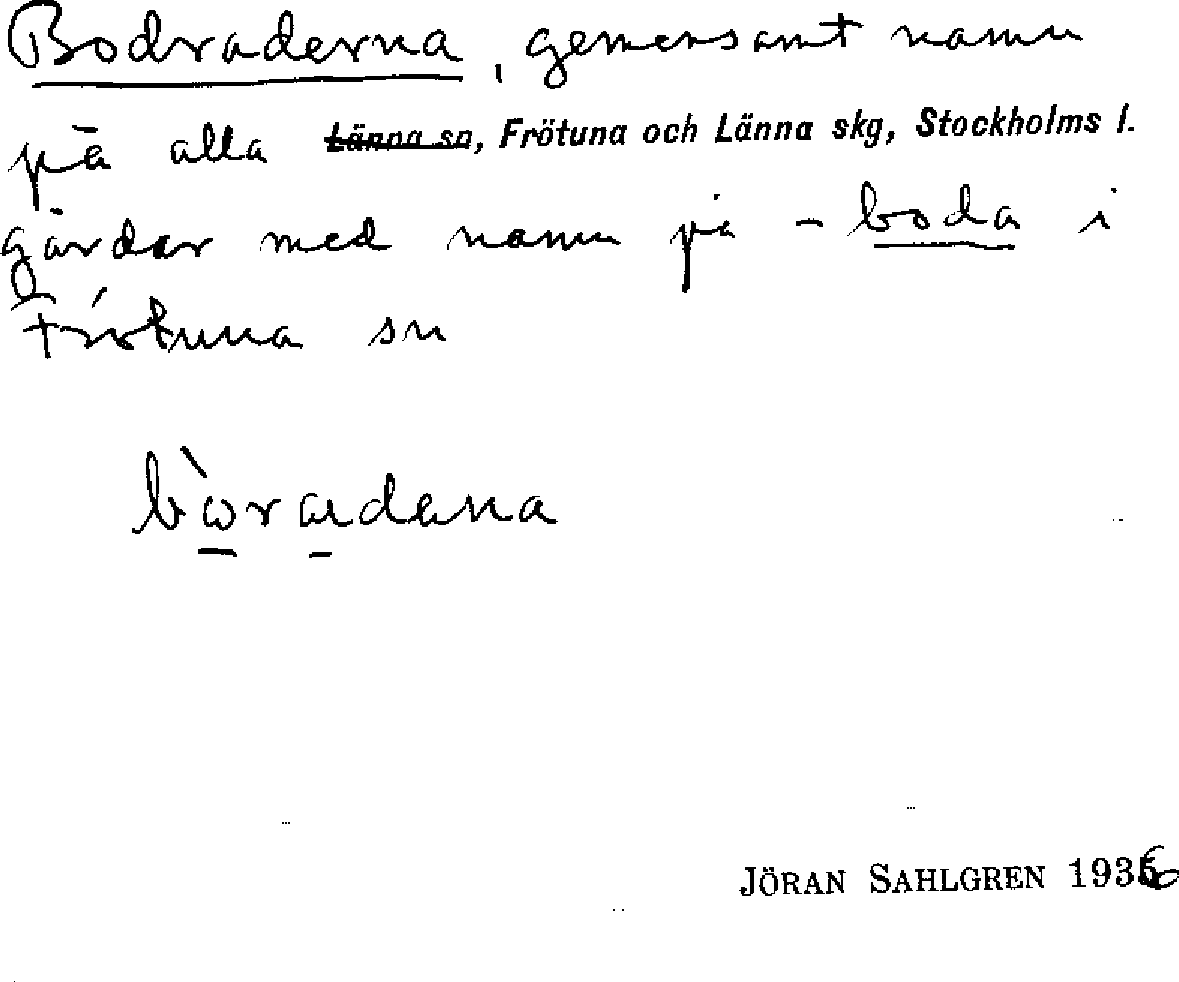 Bodraderna, gemensamt namn
på alla Länna sn, Frötuna och Länna skg, Stockholms l.
gårdar med namn på -boda i
Frötuna sn
bòradena
JÖRAN SAHLGREN 1936